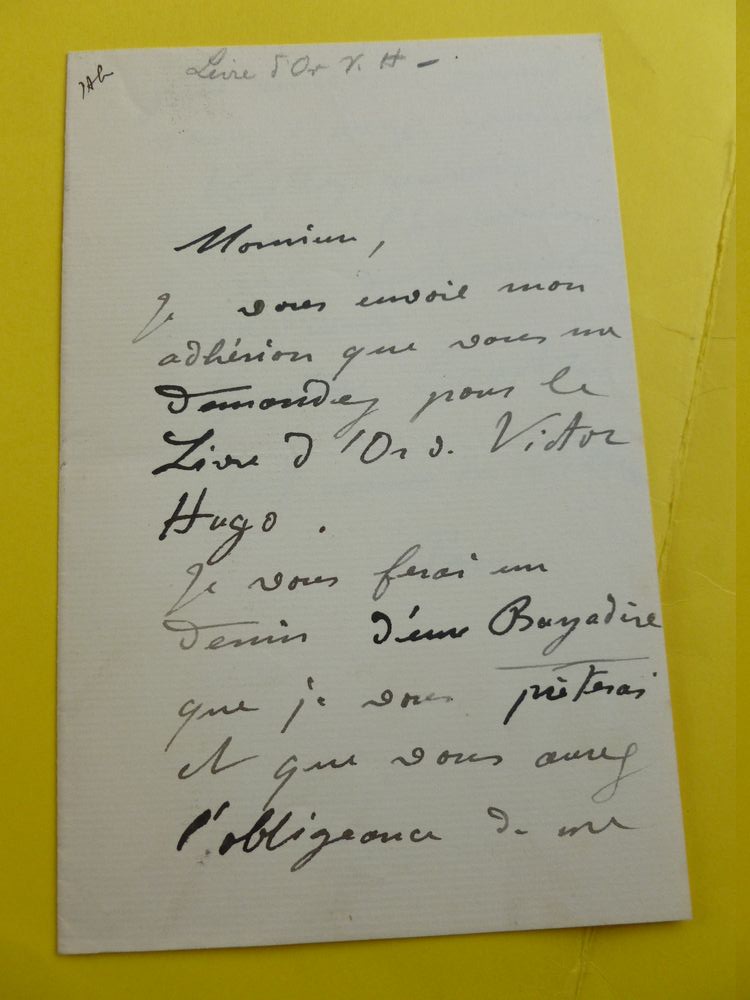 Livre d'Or V. H -
Monsieur,
Je vous envoie mon
adhésion que vous me
demandez pour le
Livre d'Or de Victor
Hugo.
Je vous ferai un
dessin d'une Bayadère
que je vous prêterai
et que vous aurez
l'obligeance de me